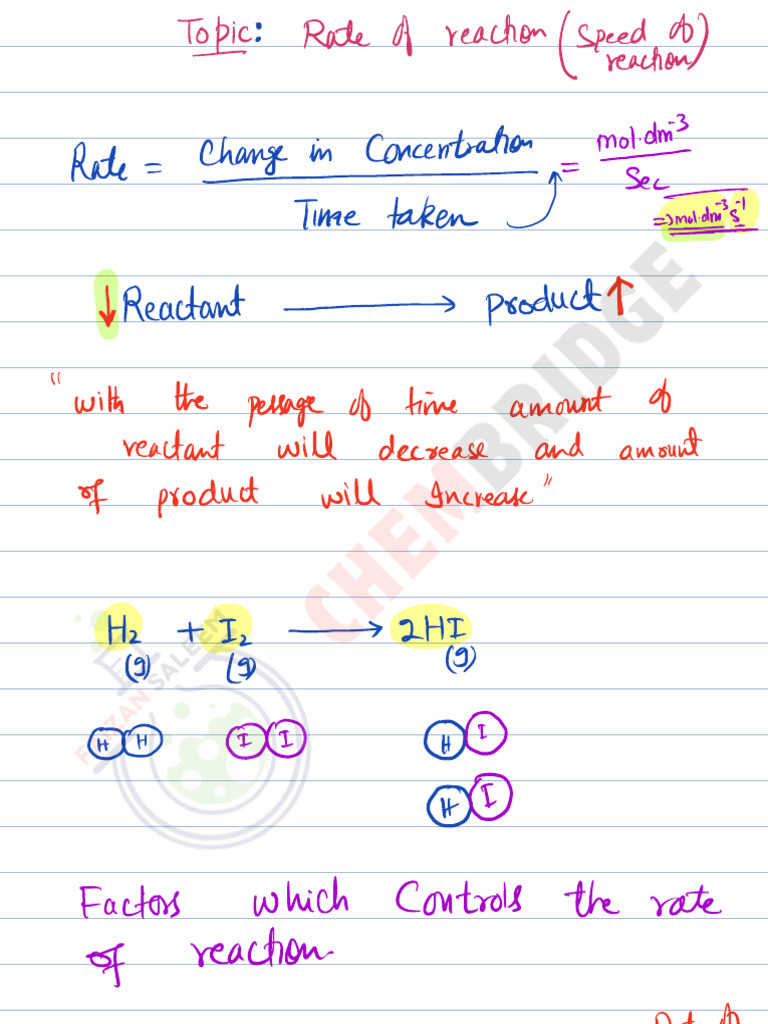 Topic: Rate of reaction (Speed of reaction)
Rate = Change in Concentration / Time taken = mol·dm⁻³ / Sec
=> mol·dm⁻³ s⁻¹
↓ Reactant ⟶ product ↑
"with the pessage of time amount of
reactant will decrease and amount
of product will Increase"
H₂ + I₂ ⟶ 2HI
(g) (g) (g)
H H I I H I
H I
Factors which Controls the rate
of reaction
CHEMBRIDGE
FAIZAN SALEEM